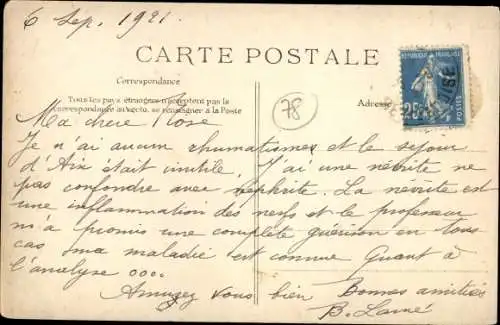 6 Sep. 1921
CARTE POSTALE
Correspondance
Tous les pays étrangers n'acceptent pas la
correspondance au verso, se renseigner à la Poste
Adresse
78
REPUBLIQUE FRANÇAISE
25c
POSTES
Ma chère Rose
Je n'ai aucun rhumatismes et le sejour
d'Aix était inutile. J'ai une névrite ne
pas confondre avec nephrite. La névrite est
une inflammation des nerfs et le professeur
m'a promis une complète guérison en tous
cas ma maladie est connue Quant à
l'analyse oooo
Amusez vous bien Bonnes amitiés
B.